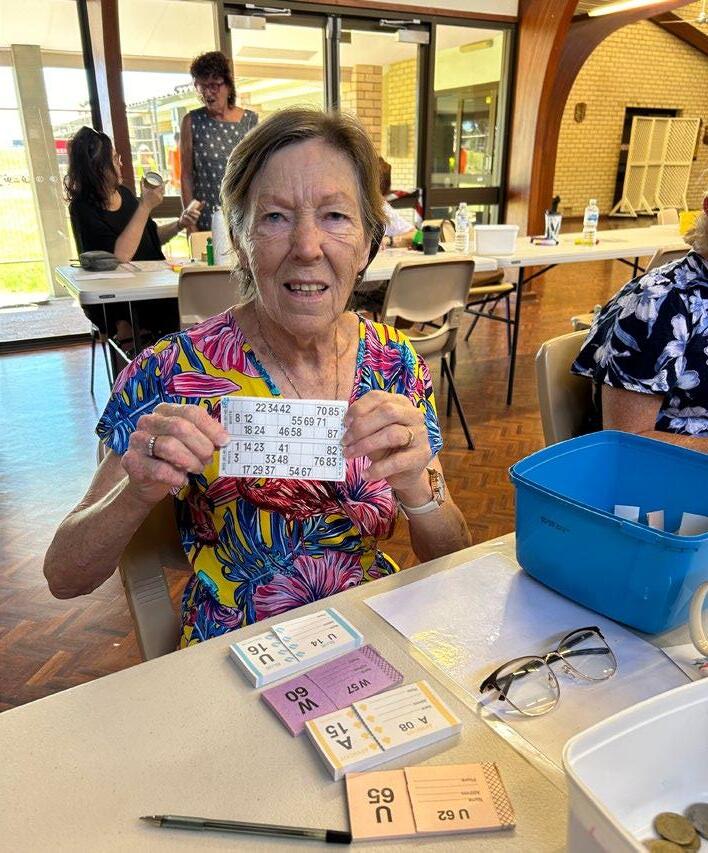 22 34 42 70 85
8 12 55 69 71
18 24 46 58 87
1 14 23 41 82
3 33 48 76 83
17 29 37 54 67
U 14
U
16
W 57
W
60
A 08
A
15
U
65
Name
Address
Phone
U 62